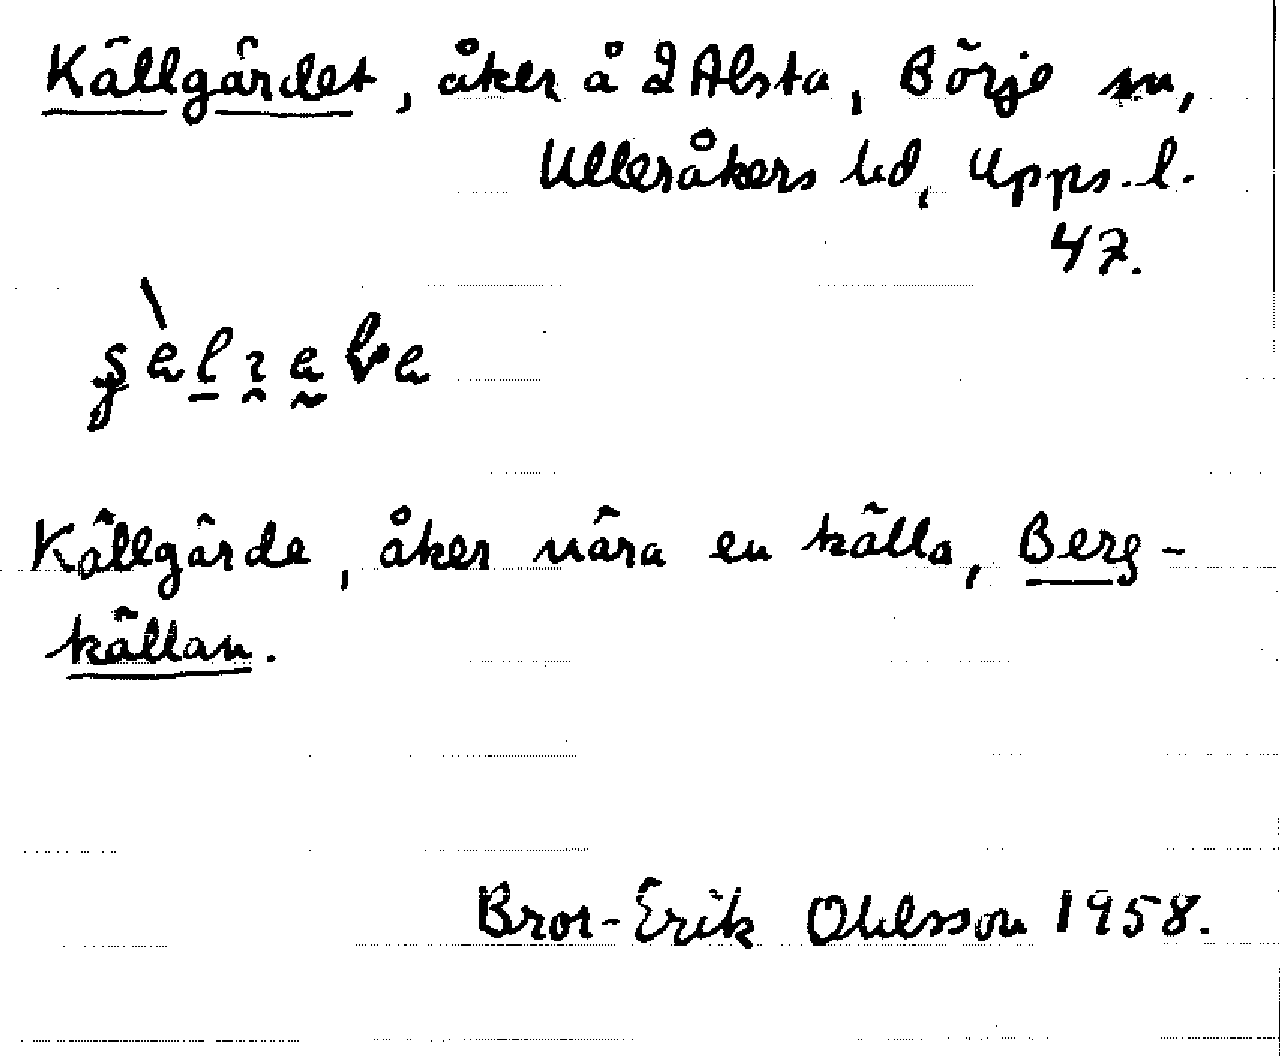 Källgärdet, åker å 2 Alsta, Börje sn,
Ulleråkers hd, Upps. l.
47.
Källgärde, åker nära en källa, Berg-
källan.
Bror-Erik Ohlsson 1958.